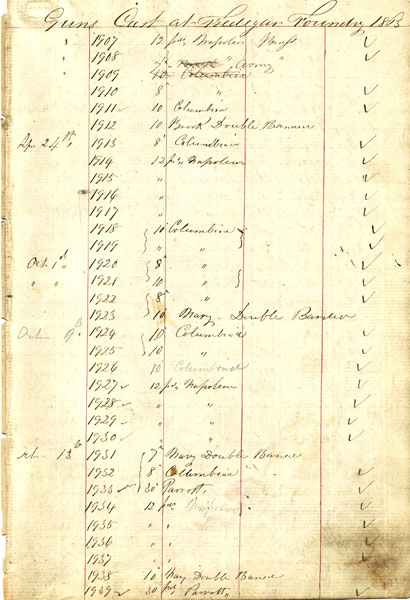 Guns Cast at Tredegar Foundry 1863
1907 12 pdr Napoleon Brass ✓
1908 7" Army " ✓
1909 40 Columbiad
1910 8 " ✓
1911 10 Columbiad ✓
1912 10 Brook Double Banded
Apr 24th 1913 8 Columbiad ✓
1914 12 pdr Napoleon ✓
1915 " " ✓
1916 " " ✓
1917 " " ✓
1918 10 Columbiad ✓
1919 " " ✓
Oct 1st 1920 8 " ✓
" " 1921 10 " ✓
1922 8 " ✓
1923 10 Navy Double Banded
Oct 9th 1924 10 Columbiad ✓
1925 10 " ✓
1926 10 Columbiad ✓
1927 ✓ 12 pdr Napoleon ✓
1928 ✓ " " ✓
1929 ✓ " " ✓
1930 ✓ " " ✓
13th 1931 7" Navy Double Banded
1932 8 Columbiad ✓
1933 ✓ 30 Parrott ✓
1934 12 pdr Napoleon ✓
1935 " " ✓
1936 " " ✓
1937 " " ✓
1938 10 Navy Double Banded
1939 ✓ 30 pdr Parrott ✓